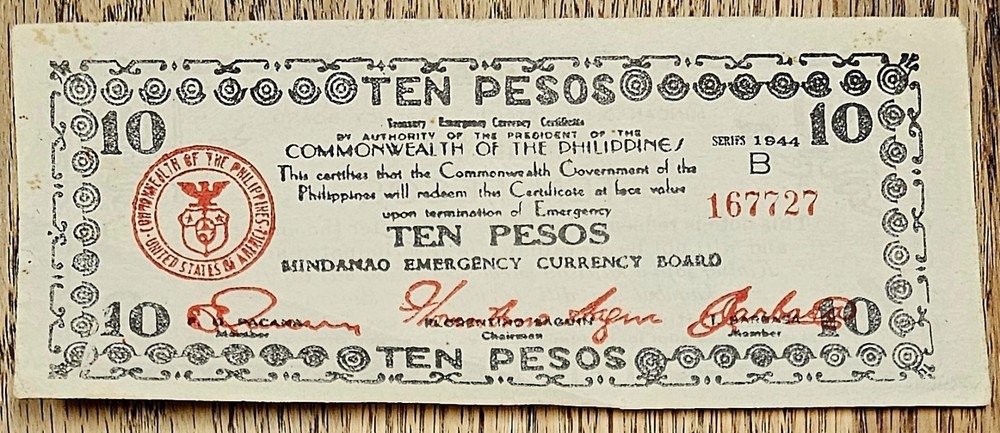 TEN PESOS
10
10
Treasury Emergency Currency Certificate
BY AUTHORITY OF THE PRESIDENT OF THE
COMMONWEALTH OF THE PHILIPPINES
SERIES 1944
B
This certifies that the Commonwealth Government of the
Philippines will redeem this Certificate at face value
upon termination of Emergency
167727
COMMONWEALTH OF THE PHILIPPINES
UNITED STATES OF AMERICA
TEN PESOS
MINDANAO EMERGENCY CURRENCY BOARD
10
10
PACANA
FLORENTINO SAGUIN
Member
Chairman
Member
TEN PESOS